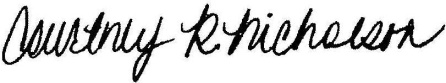 Courtney R. Nicholson